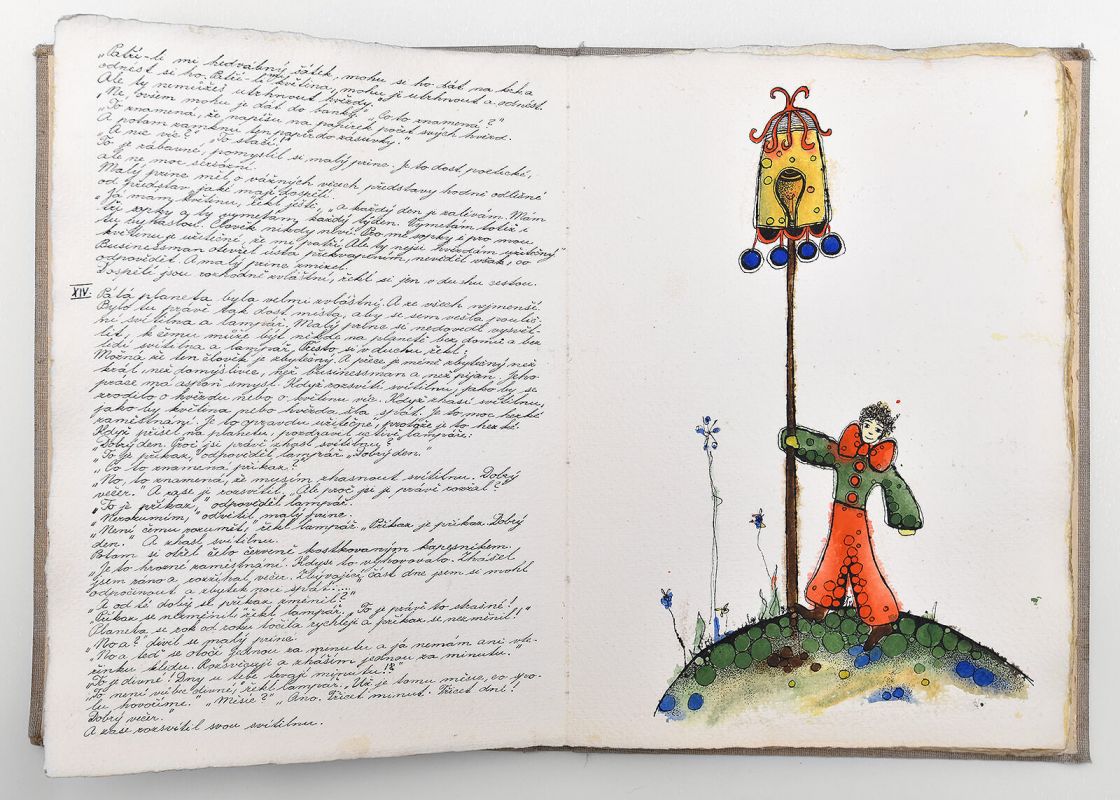 „Patří-li mi hedvábný šátek, mohu si ho dát na krk a
odnést si ho. Patří-li mi květina, mohu ji utrhnout a odnést.
Ale ty nemůžeš utrhnout hvězdy.“
„Ne, ovšem mohu je dát do banky.“ „Co to znamená?“
„To znamená, že napíšu na papírek počet svých hvězd.
A potom zamknu ten papír do zásuvky.“
„A nic víc?“ „To stačí!“
To je zábavné, pomyslil si malý princ. Je to dost poetické,
ale ne moc seriózní.
Malý princ měl o vážných věcech představy hodně odlišné
od představ jaké mají dospělí.
„Já mám květinu, řekl ještě, „a každý den ji zalívám. Mám
tři sopky a ty vymetám každý týden. Vymetám totiž i
tu vyhaslou. Člověk nikdy neví. Pro mé sopky i pro mou
květinu je užitečné, že mi patří. Ale ty nejsi hvězdám užitečný“
Businessman otevřel ústa překvapením, nevěděl však, co
odpovědět. A malý princ zmizel.
Dospělí jsou rozhodně zvláštní, řekl si jen v duchu cestou.
XIV. Pátá planeta byla velmi zvláštní. A ze všech nejmenší.
Bylo tu právě tak dost místa, aby se sem vešla poulič-
ní svítilna a lampář. Malý princ si nedovedl vysvět-
lit, k čemu může být někde na planetě bez domů a bez
lidí svítilna a lampář. Přesto si v duchu řekl:
Možná, že ten člověk je zbytečný. A přece je méně zbytečný než
král, než domýšlivec, než businessman a než pijan. Jeho
práce má aspoň smysl. Když rozsvítí svítilnu, jako by se
zrodila o hvězdu nebo o květinu víc. Když zhasí svítilnu,
jako by květina nebo hvězda šla spát. Je to moc hezké
zaměstnání. Je to opravdu užitečné, protože je to hezké.
Když přišel na planetu, pozdravil uctivě lampáře:
„Dobrý den. Proč jsi právě zhasl svítilnu?“
„To je příkaz,“ odpověděl lampář. „Dobrý den.“
„Co to znamená příkaz?“
„No, to znamená, že musím zhasnout svítilnu. Dobrý
večer.“ A zase ji rozsvítil. „Ale proč jsi ji právě rozžal?“
„To je příkaz,“ odpověděl lampář.
„Nerozumím,“ odvětil malý princ.
„Není čemu rozumět,“ řekl lampář. „Příkaz je příkaz. Dobrý
den.“ A zhasl svítilnu.
Potom si otřel čelo červeně kostkovaným kapesníkem.
„Je to hrozné zaměstnání. Kdysi to vyhovovalo. Zhášel
jsem ráno a rozžíhal večer. Zbývající část dne jsem si mohl
odpočinout a zbytek noci spát....“
„A od té doby se příkaz změnil?“
„Příkaz se nezměnil!“ řekl lampář. „To je právě to strašné!
Planeta se rok od roku točila rychleji a příkaz se nezměnil!“
„No a?“ divil se malý princ.
„No a teď se otočí jednou za minutu a já nemám ani vte-
řinku klidu. Rozsvěcuji a zhasím jednou za minutu.“
„To je divné! Dny u tebe trvají minutu!?“
„To není vůbec divné,“ řekl lampář. „Už je tomu měsíc, co spo-
lu hovoříme.“ „Měsíc?“ „Ano. Třicet minut. Třicet dní!
Dobrý večer.“
A zase rozsvítil svou svítilnu.